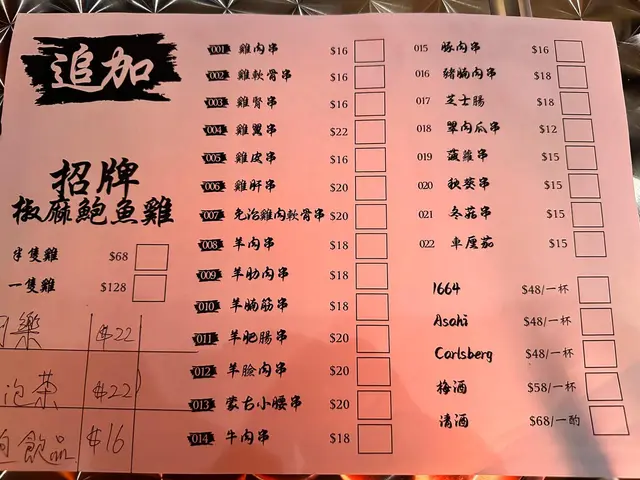 追加
招牌
椒麻鮑魚雞
半隻雞 $68
一隻雞 $128
樂 $22
泡茶 $22
飲品 $16
001 雞肉串 $16
002 雞軟骨串 $16
003 雞腎串 $16
004 雞翼串 $22
005 雞皮串 $16
006 雞肝串 $20
007 免治雞肉軟骨串 $20
008 羊肉串 $18
009 羊肋肉串 $18
010 羊腩筋串 $18
011 羊肥腸串 $20
012 羊臉肉串 $20
013 蒙古小腰串 $20
014 牛肉串 $18
015 豚肉串 $16
016 豬腩肉串 $18
017 芝士腸 $18
018 翠肉瓜串 $12
019 菠蘿串 $15
020 秋葵串 $15
021 冬菇串 $15
022 車厘茄 $15
1664 $48/一杯
Asahi $48/一杯
Carlsberg $48/一杯
梅酒 $58/一杯
清酒 $68/一酌